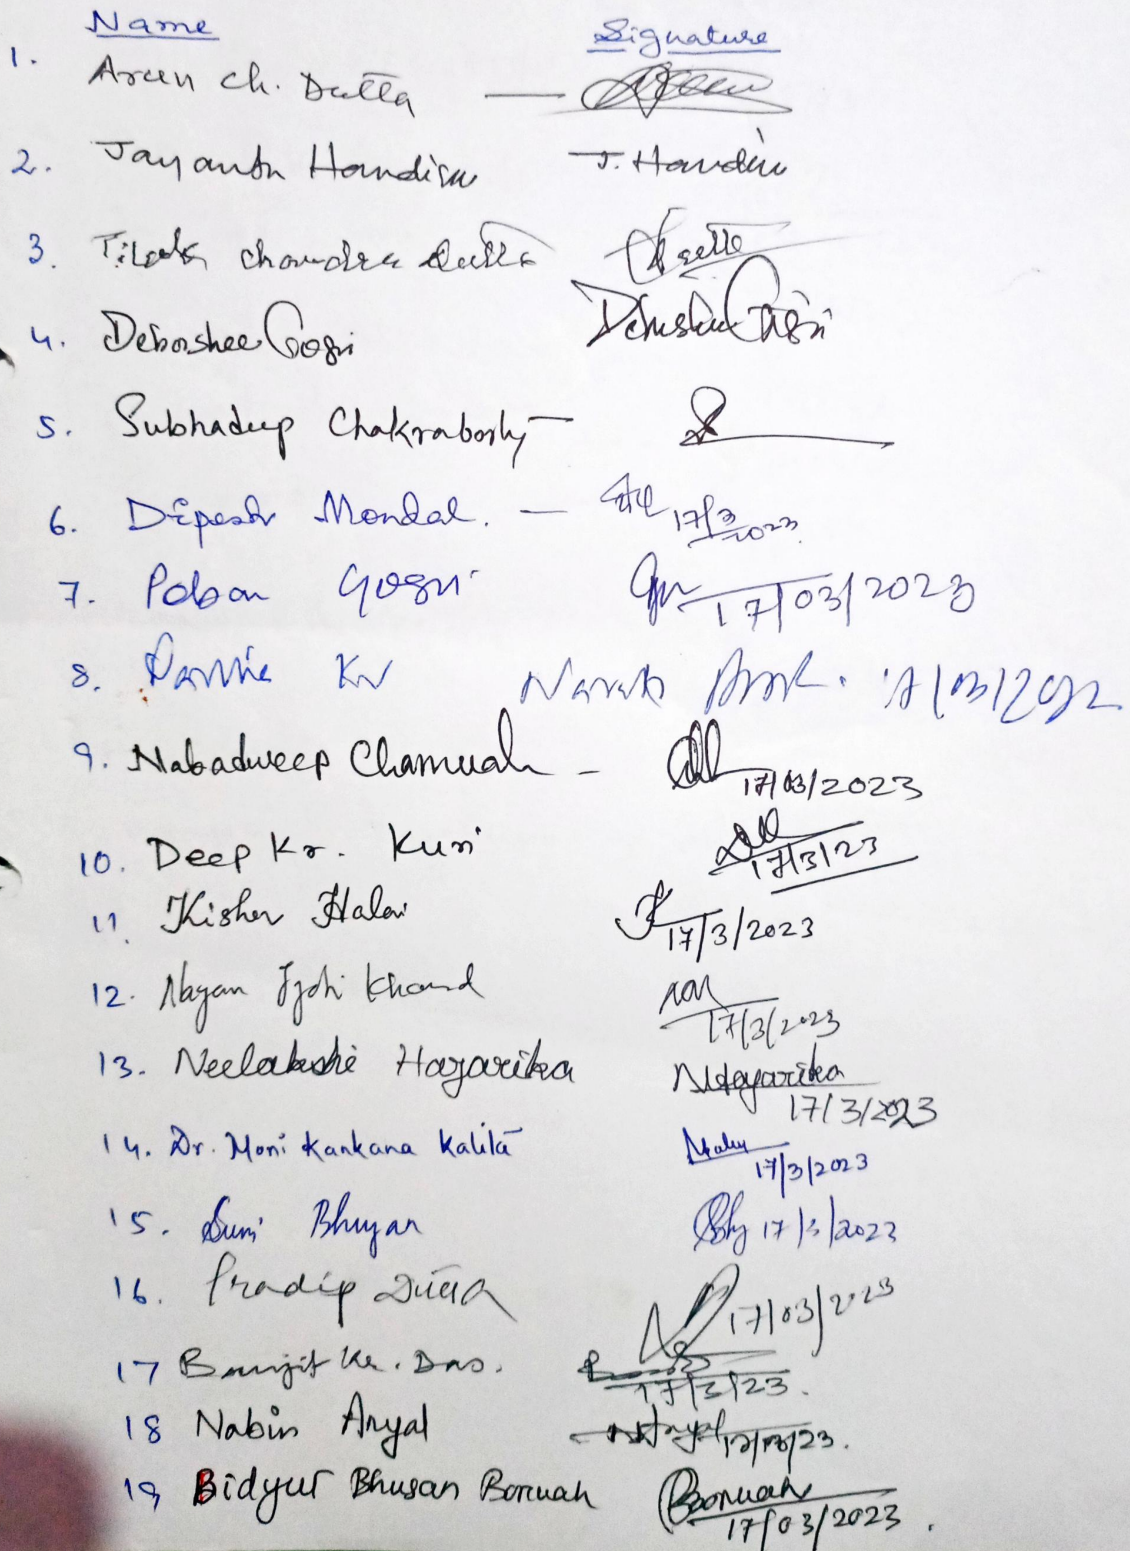 Name Signature
1. Arun Ch. Dutta —
2. Jayanta Handique J. Handique
3. Tilak Chandra Dutta
4. Debashee Gogoi Debashee Gogoi
5. Subhadeep Chakraborty —
6. Dipesh Mondal. — 17/3/2023
7. Poban Gogoi 17/03/2023
8. Kr
9. Nabadweep Chamuah - 17/03/2023
10. Deep Kr. Kuri 17/3/23
11. Kishor Haloi 17/3/2023
12. Nayan Jyoti Khound 17/3/2023
13. Neelakshi Hazarika NHazarika 17/3/2023
14. Dr. Moni Kankana Kalita 17/3/2023
15. Bhuyan 17/3/2023
16. Pradip Dutta 17/03/2023
17 Kr. Das. 17/3/23.
18 Nabin Aryal NAryal /23.
19 Bidyut Bhusan Boruah BBoruah 17/03/2023.